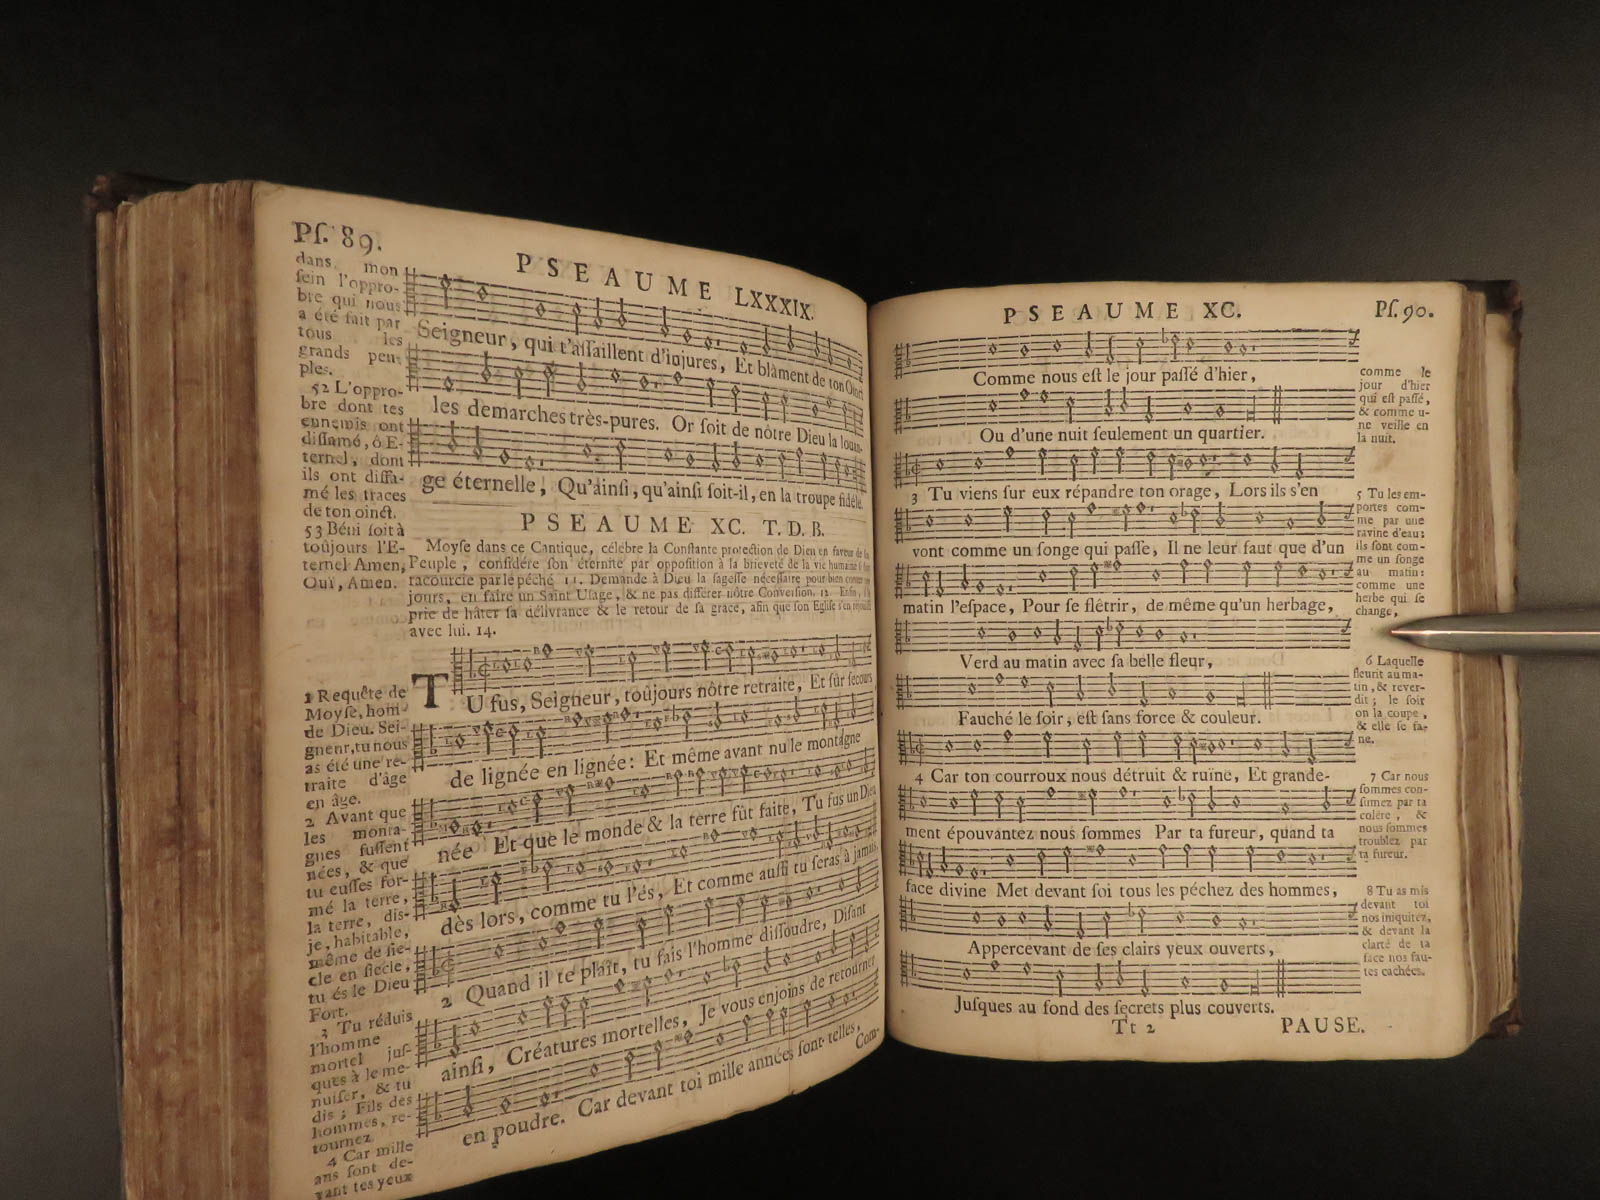 Pſ. 89.
PSEAUME LXXXIX.
dans mon
ſein l'oppro-
bre qui nous
a été fait par
tous les
grands peu-
ples.
52 L'oppro-
bre dont tes
ennemis ont
diffamé, ô E-
ternel, dont
ils ont diffa-
mé les traces
de ton oinct.
53 Béni ſoit à
toûjours l'E-
ternel Amen,
Oui, Amen.
Seigneur, qui t'aſſaillent d'injures, Et blâment de ton Oinct
les demarches très-pures. Or ſoit de nôtre Dieu la louan-
ge éternelle, Qu'ainſi, qu'ainſi ſoit-il, en la troupe fidéle.
PSEAUME XC. T. D. B.
Moyſe dans ce Cantique, célébre la Conſtante protection de Dieu en faveur de ſon
Peuple, conſidére ſon éternité par oppoſition à la brieveté de la vie humaine
racourcie par le péché 11. Demande à Dieu la ſageſſe néceſſaire pour bien
jours, en faire un Saint Uſage, & ne pas différer nôtre Converſion. 12
prie de hâter ſa délivrance & le retour de ſa grace, afin que ſon Egliſe s'en
avec lui. 14.
1 Requête de
Moyſe, hom-
de Dieu. Sei-
gneur, tu nous
as été une re-
traite d'âge
en âge.
2 Avant que
les monta-
gnes fuſſent
nées, & que
tu euſſes for-
mé la terre,
la terre, dis-
je, habitable,
même de ſie-
cle en ſiecle,
tu és le Dieu
Fort.
3 Tu réduis
l'homme
mortel juſ-
ques à le me-
nuiſer, & tu
dis; Fils des
hommes, re-
tournez.
4 Car mille
ans ſont de-
vant tes yeux
TU fus, Seigneur, toûjours nôtre retraite, Et ſûr ſecours
de lignée en lignée: Et même avant nulle montagne
née Et que le monde & la terre fût faite, Tu fus un Dieu
dès lors, comme tu l'és, Et comme auſſi tu ſeras à jamais.
2 Quand il te plaît, tu fais l'homme diſſoudre, Diſant
ainſi, Créatures mortelles, Je vous enjoins de retourner
en poudre. Car devant toi mille années ſont telles,
Com-
PSEAUME XC.
Pſ. 90.
Comme nous eſt le jour paſſé d'hier,
Ou d'une nuit ſeulement un quartier.
3 Tu viens ſur eux répandre ton orage, Lors ils s'en
vont comme un ſonge qui paſſe, Il ne leur faut que d'un
matin l'eſpace, Pour ſe flétrir, de même qu'un herbage,
Verd au matin avec ſa belle fleur,
Fauché le ſoir, eſt ſans force & couleur.
4 Car ton courroux nous détruit & ruïne, Et grande-
ment épouvantez nous ſommes Par ta fureur, quand ta
face divine Met devant ſoi tous les péchez des hommes,
Appercevant de ſes clairs yeux ouverts,
Juſques au fond des ſecrets plus couverts.
Tt 2
PAUSE.
comme le
jour d'hier
qui eſt paſſé,
& comme u-
ne veille en
la nuit.
5 Tu les em-
portes com-
me par une
ravine d'eau;
ils ſont com-
me un ſonge
au matin:
comme une
herbe qui ſe
change,
6 Laquelle
fleurit au ma-
tin, & rever-
dit; le ſoir
on la coupe,
& elle ſe fa-
ne.
7 Car nous
ſommes con-
ſumez par ta
colére, &
nous ſommes
troublez par
ta fureur.
8 Tu as mis
devant toi
nos iniquitez,
& devant la
clarté de ta
face nos fau-
tes cachées.